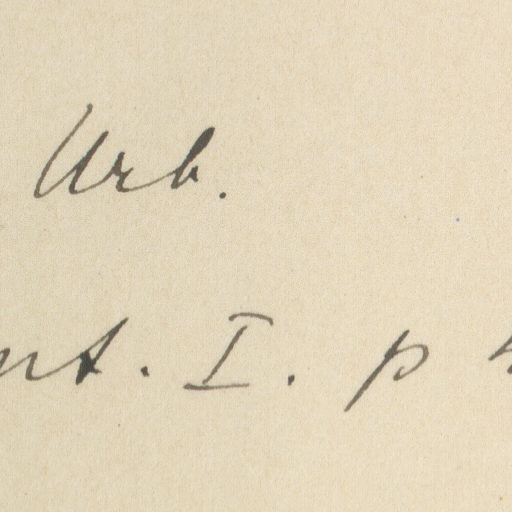 Urb.
nt. I. p